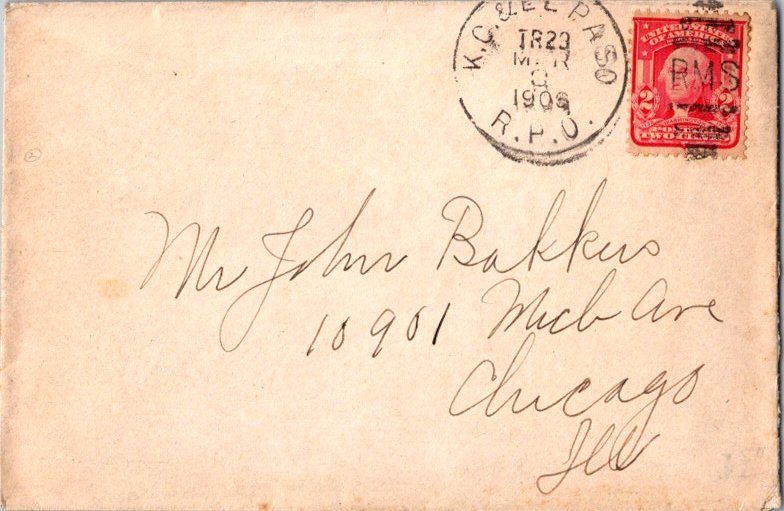 K.C. & EL PASO
TR23
MAR
1906
R.P.O.
UNITED STATES
OF AMERICA
RMS
2 2
WASHINGTON
TWO CENTS
Mr John Bakkus
10901 Mich Ave
Chicago
Ill